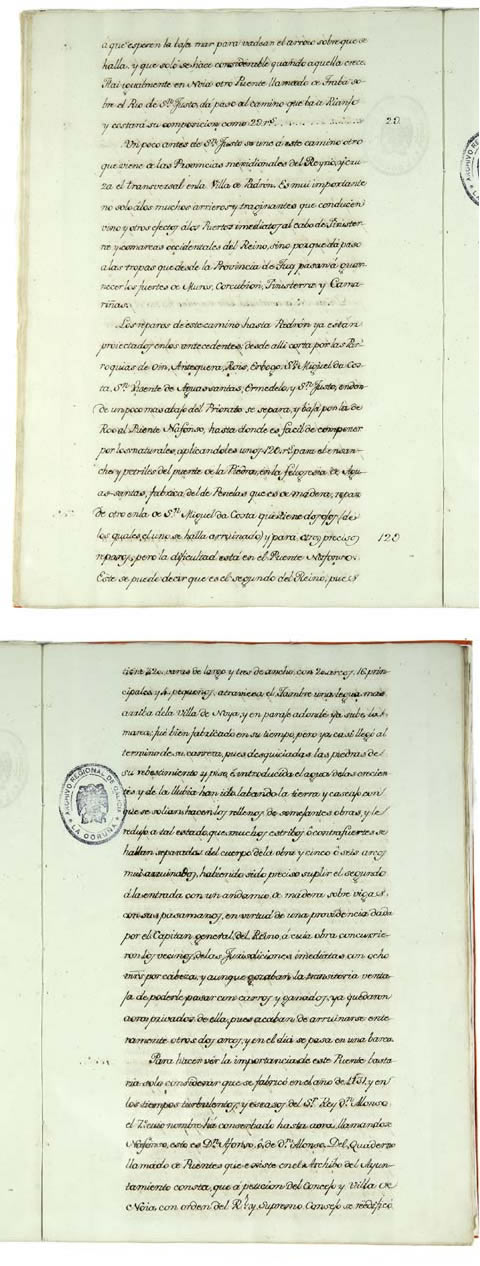 a que esperen la baja mar para vadear el arroio sobre que se
halla, y que solo se hace considerable quando aquella crece.
Hai igualmente en Noia otro Puente llamado de Traba so-
bre el Rio de Sn. Justo, dá paso al camino que ba a Rianjo
y costará su composicion como 20 rs. 20.
Un poco antes de Sn. Justo se une á este camino otro
que viene de las Provincias meridionales del Reyno, y cru-
za el transversal en la Villa de Padrón. Es mui importante
no solo álos muchos arrieros y traginantes que conducen
vino y otros efectos álos Puertos imediatos al cabo de Finister-
re y comarcas occidentales del Reino, sino porque dá paso
a las tropas que desde la Provincia de Tuy pasan á guar-
necer los fuertes de Muros, Corcubion, Finisterre y Cama-
riñas.
Los reparos de este camino hasta Padrón ya están
proiectados en los antecedentes, desde alli corta por las Par-
roquias de Oin, Antequera, Rois, Erbogo, Sn. Miguel da Cos-
ta, Sn. Visente de Aguassantas, Ermedelo, y Sn. Justo, en don-
de un poco mas abajo del Priorato se separa, y baja por la de
Roo al Puente Nafonso, hasta donde es facil de componer
por los naturales, aplicandoles unos 120 rs. para el ensan-
che y petriles del puente de la Piedra, en la feligresia de Agu-
as-santas, fabrica del de Penelas que es de madera, repara
de otro en la de Sn. Miguel da Costa que tiene dos ojos (de
los quales el uno se halla arruinado) y para otros precisos
reparos, pero la dificultad está en el Puente Nafonso. 120
Este se puede decir que es el segundo del Reino, pues
tiene 220 varas de largo y tres de ancho, con 20 arcos, 16 prin-
cipales y 4 pequeños, atraviesa el Tambre una legua mas
arriba dela Villa de Noya, y en paraje adonde ya sube la
marea; fué bien fabricado en su tiempo, pero ya casi llegó al
termino de su carrera, pues desquiciadas las piedras de
su rebestimiento y piso, é introducida el agua delas crecien-
tes y de la llubia han ido labando la tierra y cascajo con
que se solian hacer los rellenos de semejantes obras, y le
redujo a tal estado, que muchos estribos ó contrafuertes se
hallan separados del cuerpo dela obra y cinco ó seis arcos
mui arruinados, habiendo sido preciso suplir el segundo
á la entrada con un andamio de madera sobre vigas
con sus pasamanos, en virtud de una providencia dada
por el Capitan general del Reino, á cuia obra concurrie-
ron los vecinos delas Jurisdiciones imediatas con ocho
mrs. por cabeza, y aunque gozaban la transitoria venta-
ja de poderle pasar con carros y ganados, ya quedaron
aora privados de ella, pues acaban de arruinarse ente-
ramente otros dos arcos, y en el dia se pasa en una barca.
Para hacer vér la importancia de este Puente basta-
ria solo considerar que se fabricó en el año de 1431 y en
los tiempos turbulentos y escasos del Sr. Rey Dn. Alonso
el cuio nombre há conserbado hasta aora, llamandose
Nafonso, esto es Dn. Afonso, ó de Dn. Alonso. Del Quaderno
llamado de Puentes que existe en el Archibo del Ayun-
tamiento consta, que á peticion del Concejo y Villa de
Noia, con orden del R. y Supremo Consejo se reedificó
ARCHIVO REGIONAL DE GALICIA
LA CORUÑA